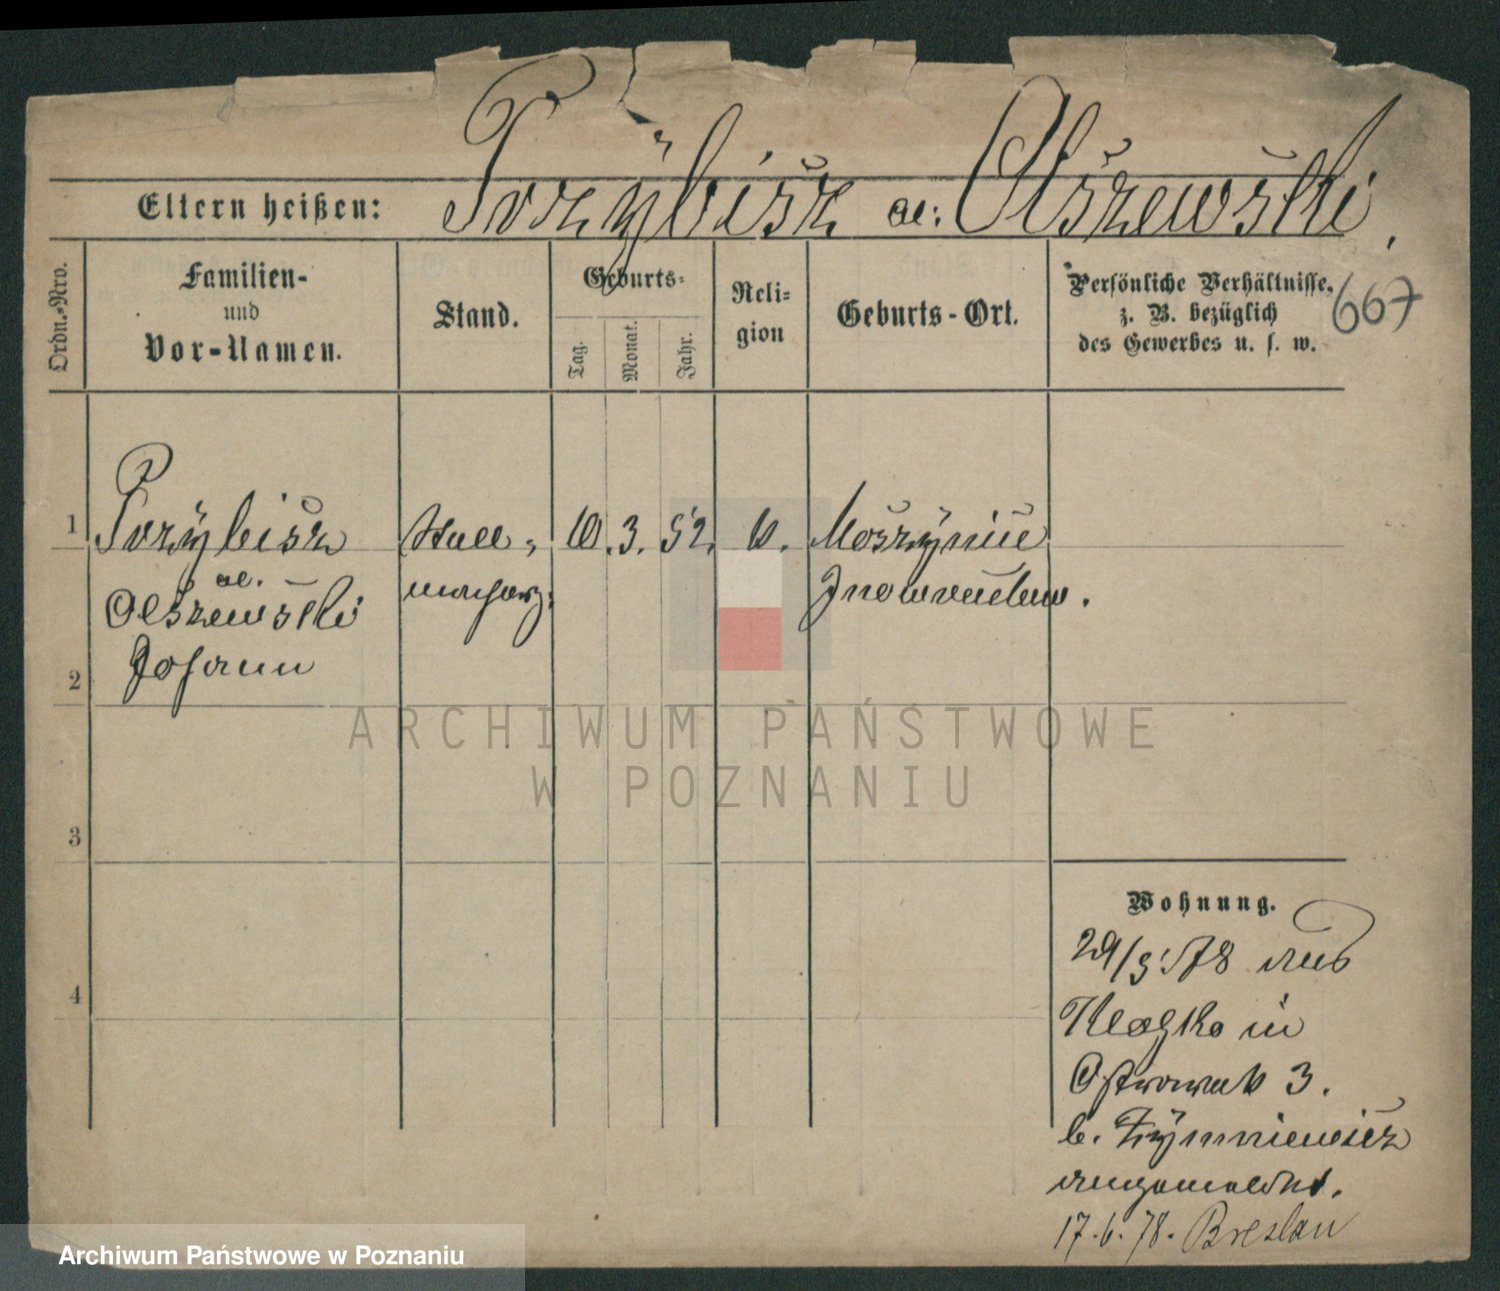 Eltern heißen: Przÿbisz al: Olszewski.
667
Ordn.-Nro.
Familien-
und
Vor-Namen.
Stand.
Geburts-
Tag.
Monat.
Jahr.
Reli-
gion
Geburts-Ort.
Persönliche Verhältnisse,
z. B. bezüglich
des Gewerbes u. s. w.
1
Przÿbisz
al.
Olszewski
Johann
Stell-
macherg.
10. 3. 52.
k.
Inowraclaw.
2
3
4
Wohnung.
29/3 78 aus
Kletzko in
Ostrowek 3.
b.
angemeldet.
17. 6. 78. Breslau
ARCHIWUM PAŃSTWOWE
W POZNANIU
Archiwum Państwowe w Poznaniu